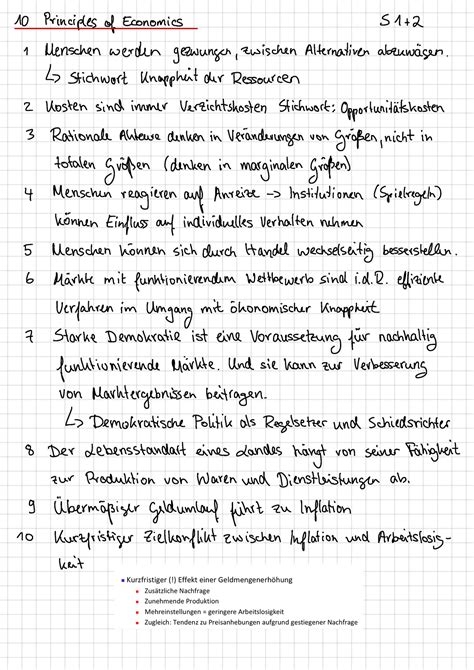 10 Principles of Economics S 1+2
1 Menschen werden gezwungen, zwischen Alternativen abzuwägen.
↳ Stichwort Knappheit der Ressourcen
2 Kosten sind immer Verzichtskosten Stichwort: Opportunitätskosten
3 Rationale Akteure denken in Veränderungen von Größen, nicht in
totalen Größen (denken in marginalen Größen)
4 Menschen reagieren auf Anreize → Institutionen (Spielregeln)
können Einfluss auf individuelles Verhalten nehmen
5 Menschen können sich durch Handel wechselseitig besserstellen.
6 Märkte mit funktionierendem Wettbewerb sind i.d.R. effiziente
Verfahren im Umgang mit ökonomischer Knappheit
7 Starke Demokratie ist eine Voraussetzung für nachhaltig
funktionierende Märkte. Und sie kann zur Verbesserung
von Marktergebnissen beitragen.
↳ Demokratische Politik als Regelsetzer und Schiedsrichter
8 Der Lebensstandart eines Landes hängt von seiner Fähigkeit
zur Produktion von Waren und Dienstleistungen ab.
9 Übermäßiger Geldumlauf führt zu Inflation
10 Kurzfristiger Zielkonflikt zwischen Inflation und Arbeitslosig-
keit
▪ Kurzfristiger (!) Effekt einer Geldmengenerhöhung
▪ Zusätzliche Nachfrage
▪ Zunehmende Produktion
▪ Mehreinstellungen = geringere Arbeitslosigkeit
▪ Zugleich: Tendenz zu Preisanhebungen aufgrund gestiegener Nachfrage